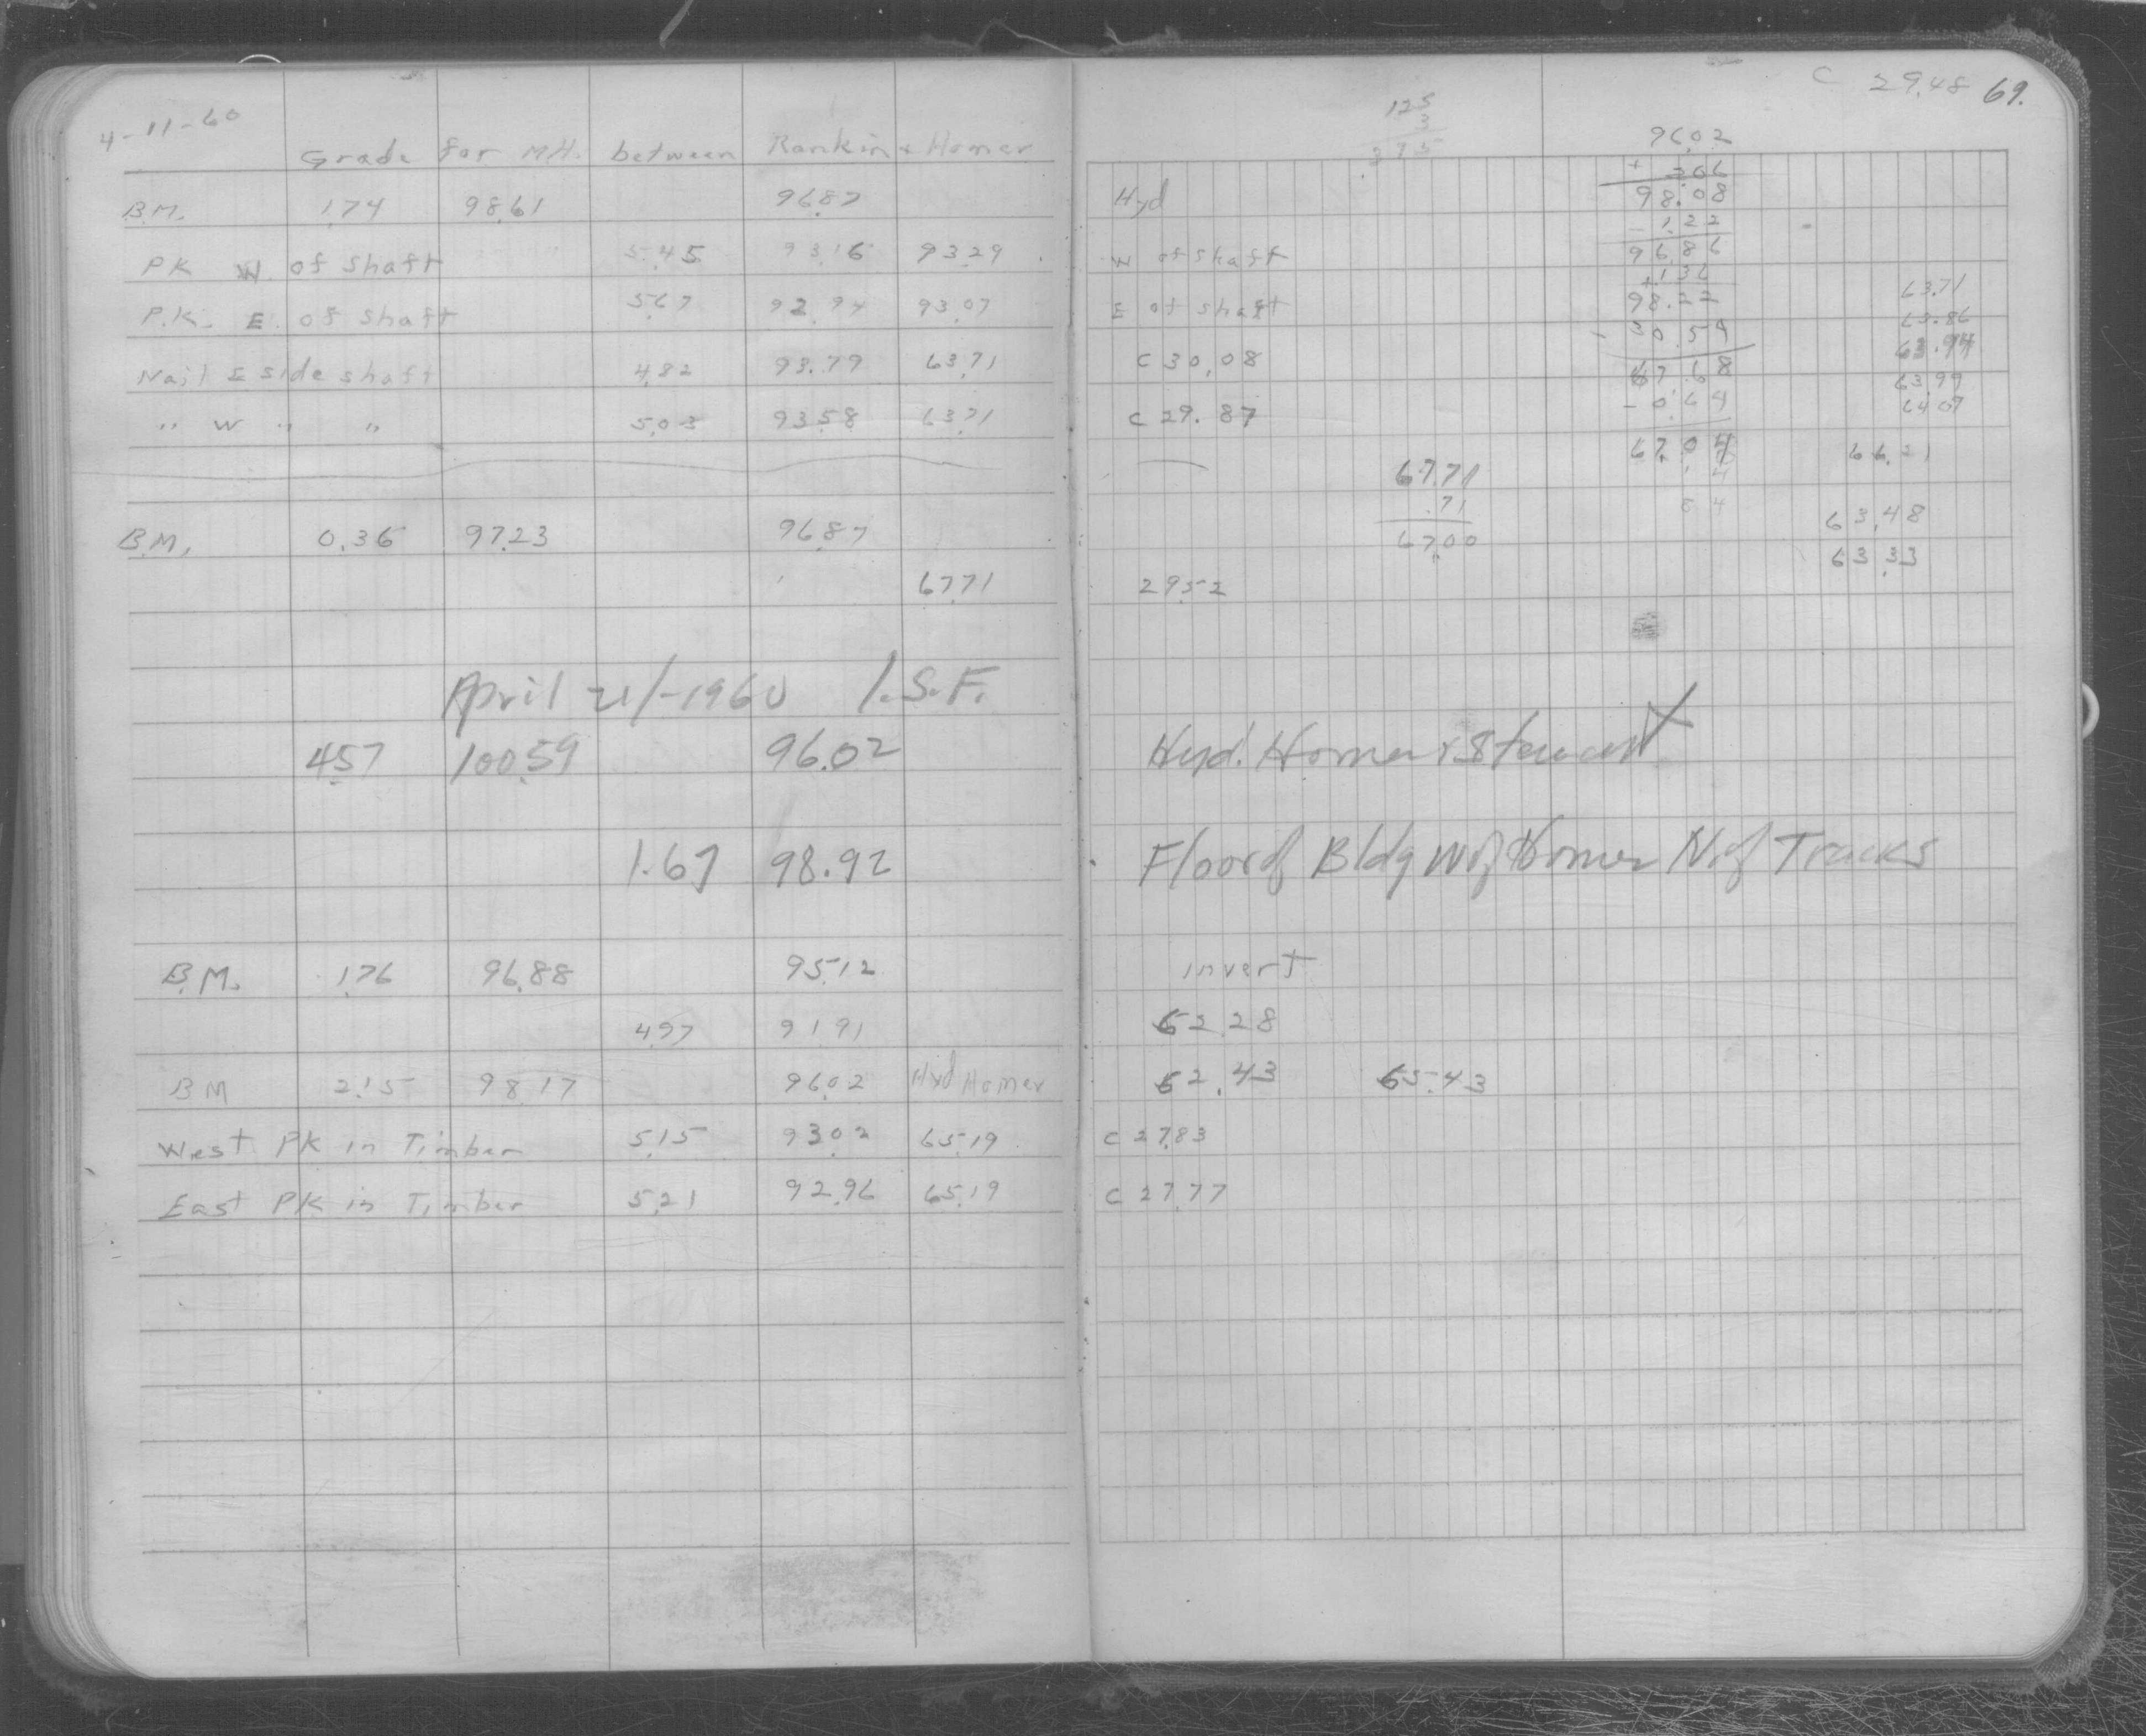 4-11-60
Grade for M.H. between Rankin + Homer
B.M. 1.74 98.61 96.87
PK W. of shaft 5.45 93.16 93.29
P.K. E. of shaft 5.67 92.94 93.07
Nail E side shaft 4.82 93.79 63.71
" W " " 5.03 93.58 63.71
B.M. 0.36 97.23 96.87
67.71
April 21/-1960 I.S.F.
4.57 100.59 96.02
1.67 98.92
B.M. 1.76 96.88 95.12
4.97 91.91
BM 2.15 98.17 96.02 Hyd Homer
West PK in Timber 5.15 93.02 65.19
East PK in Timber 5.21 92.96 65.19
C 29.48 69.
125
3
.375
96.02
+ 2.06
98.08
- 1.22
96.86
+ 1.36
98.22
- 30.54
67.68
- 0.64
67.04
84
63.71
63.86
63.94
63.99
64.07
66.21
63.48
63.33
Hyd
W of shaft
E of shaft
C 30.08
C 29.87
67.71
.71
67.00
29.52
Hyd. Homer + Stewart
Floor of Bldg W of Homer N. of Tracks
invert
62.28
62.43 65.43
C 27.83
C 27.77